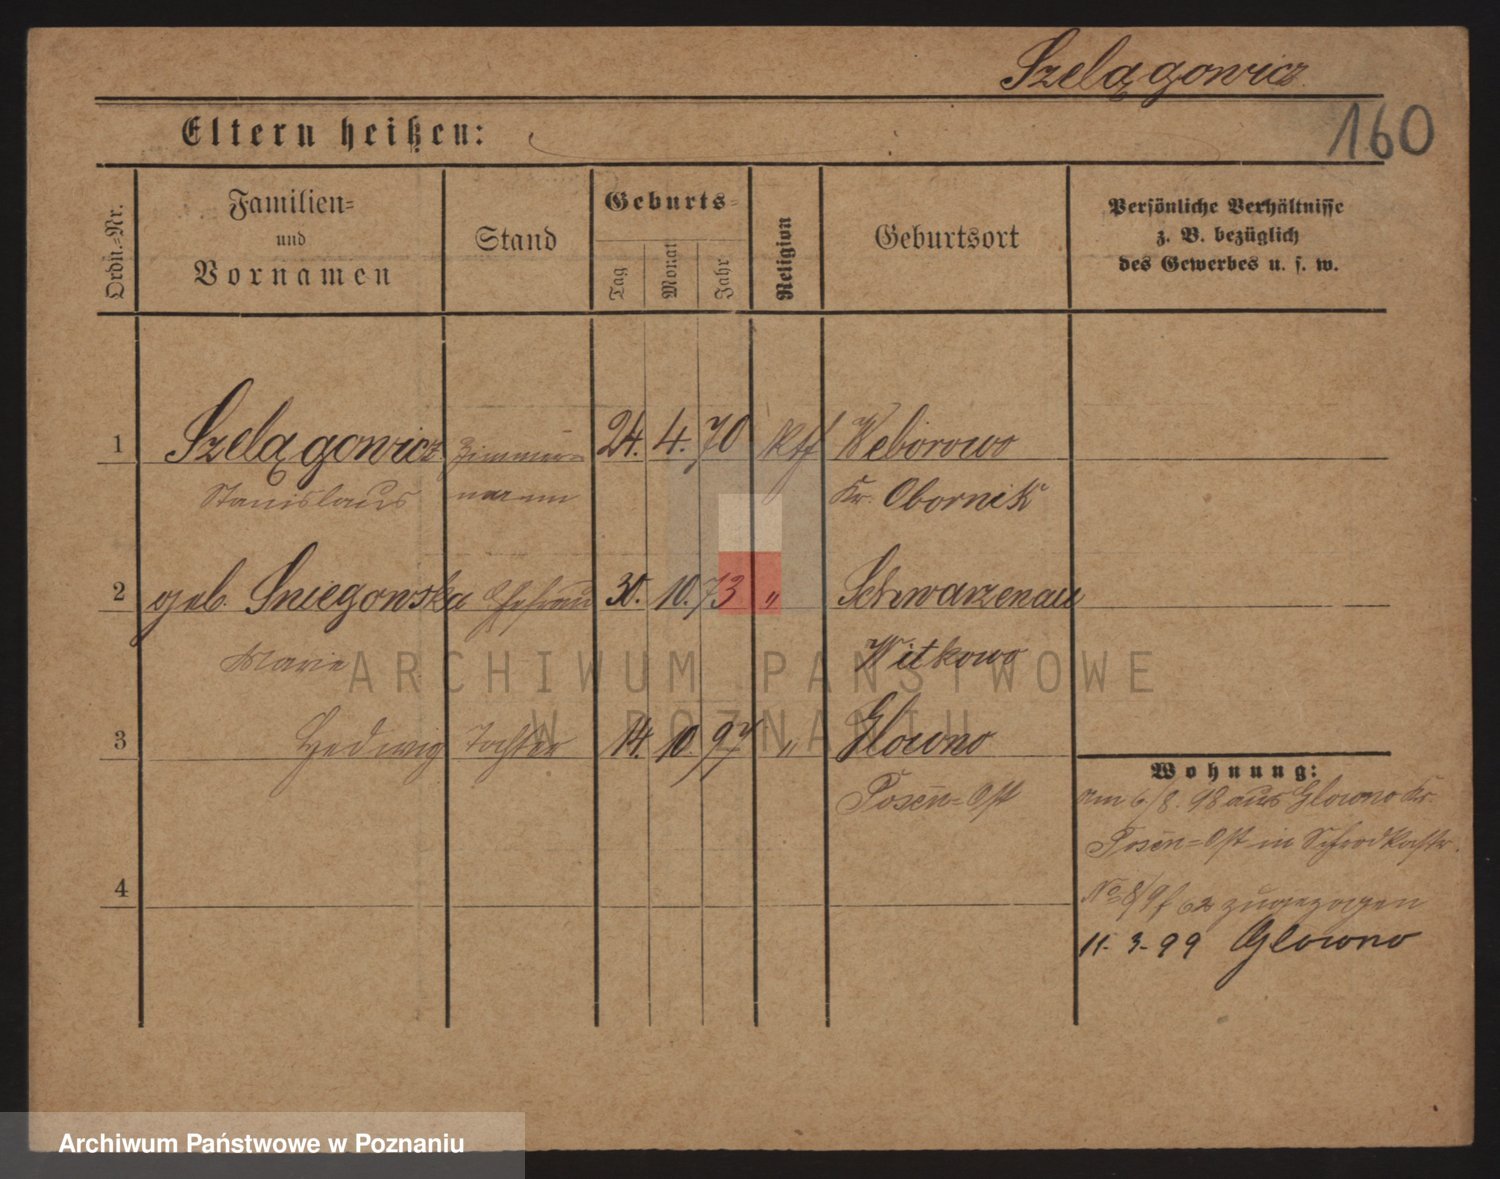 Szelągowicz
160
Eltern heißen:
Ordn.-Nr.
Familien-
und
Vornamen
Stand
Geburts-
Tag
Monat
Jahr
Religion
Geburtsort
Persönliche Verhältnisse
z. B. bezüglich
des Gewerbes u. s. w.
1 Szelągowicz Zimmer- 24. 4. 70 Kth Weborowo
Stanislaus mann Kr. Obornik
2 geb. Sniegowska Ehefrau 30. 10. 73 " Schwarzenau
Marie Witkowo
3 Hedwig Tochter 14. 10. 97 " Glowno
Posen-Ost
4
Wohnung:
am 6/8. 98 aus Glowno Kr.
Posen-Ost in
zugezogen
11. 3. 99 Glowno
ARCHIWUM PAŃSTWOWE
W POZNANIU
Archiwum Państwowe w Poznaniu